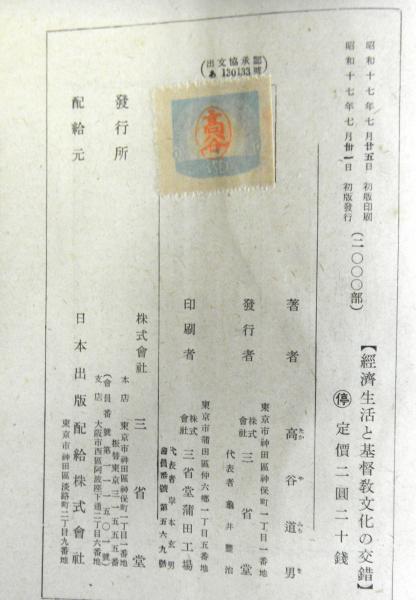 昭和十七年七月廿五日 初版印刷
昭和十七年七月卅一日 初版發行
(二〇〇〇部)
【經濟生活と基督教文化の交錯】
停 定價二圓二十錢
著者 高谷道男
たかやみちを
東京市神田區神保町一丁目一番地
發行者 株式會社 三省堂
代表者 龜井豐治
東京市蒲田區仲六鄕一丁目五番地
印刷者 株式會社 三省堂蒲田工場
代表者 岸本玄男
出文協承認
あ 130133號
高谷
發行所 株式會社 三省堂
本店 東京市神田區神保町一丁目一番地
振替東京三一五五五番
(會員番號第一一一五〇一號)
支店 大阪市西區阿波座下通二丁目六番地
配給元 日本出版配給株式會社
東京市神田區淡路町二丁目九番地